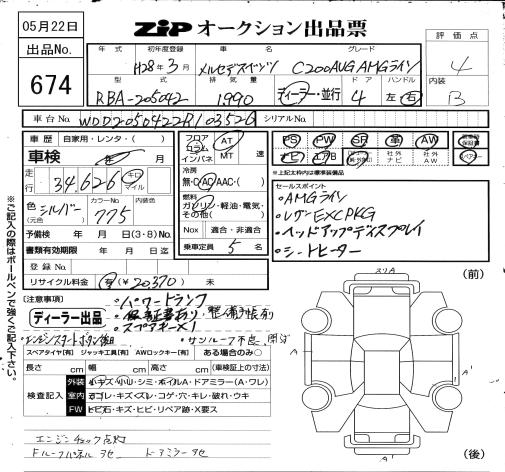 05月22日
ZIP オークション出品票
評価点
4
内装
B
出品No.
674
年式
初年度登録
H28年3月
車名
メルセデスベンツ
グレード
C200AVG AMGライン
型式
RBA-205042
排気量
1990
ディーラー・並行
ドア
4
ハンドル
左・右
車台No.
WDD2050422R103526
シリアルNo.
車歴 自家用・レンタ・( )
車検 年 月
走行
34,626 キロ マイル
色(元色)
シルバー
カラーNo.
775
内装色
予備検 年 月 日(3・8)
書類有効期限 年 月 日迄
登録No.
リサイクル料金 有(¥20,370) 未
フロア コラム インパネ
AT MT 速
冷房
無・C・AC・AAC・( )
燃料
ガソリン・軽油・電気・その他( )
Nox 適合・非適合
乗車定員 5 名
PS PW SR 革 AW
ナビ エアB 社外ナビ 社外AW
スペアキー
※上記太枠内は標準装備品
セールスポイント
・AMGライン
・レザーEXCPKG
・ヘッドアップディスプレイ
・シートヒーター
※ご記入の際はボールペンで強くご記入下さい。
(注意事項)
ディーラー出品
・パワートランク
・保証書あり・整備手帳有
・スペアキー×1
・エンジンスタートボタン
・サンルーフ不良
スペアタイヤ[有] ジャッキ工具[有] AWロックキー[有] ある場合のみ○
長さ cm 幅 cm 高さ cm (車検証上の寸法)
検査記入
外装 小キズ・小凹・シミ・ホイルA・ドアミラー(A・ワレ)
室内 ヨゴレ・キズ・スレ・コゲ・穴・キレ・破れ・ウキ
FW トビ石・キズ・ヒビ・リペア跡・X要ス
エンジンチェック点灯
ドアミラー
(前)
(後)
A
A'